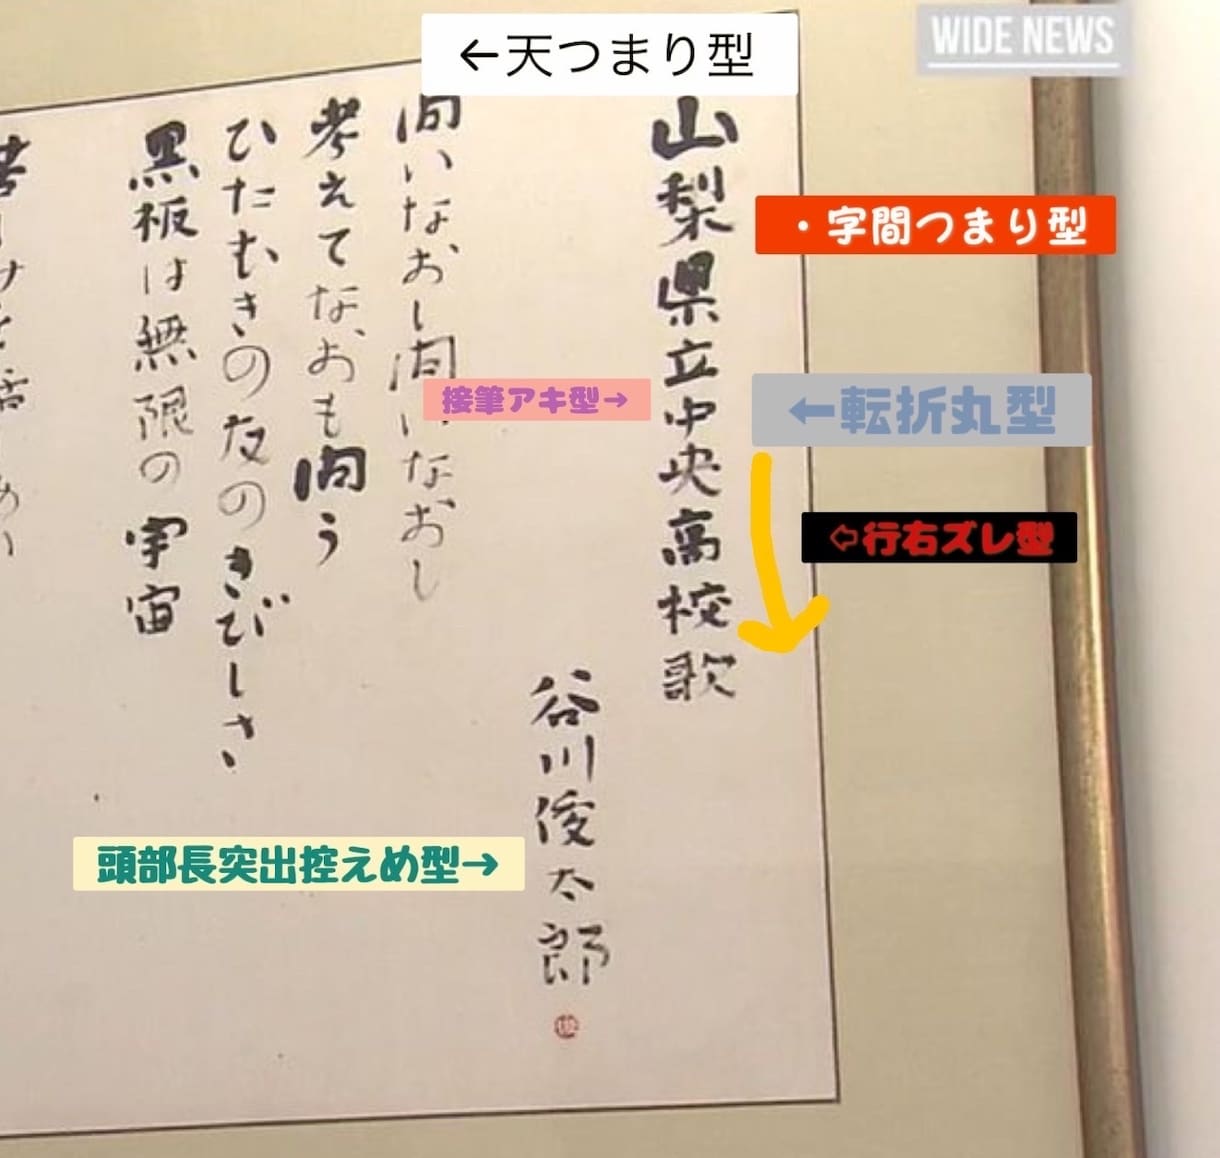 WIDE NEWS
←天つまり型
・字間つまり型
←転折丸型
⇦行右ズレ型
接筆アキ型→
頭部長突出控えめ型→
山梨県立中央高校歌
谷川俊太郎
問いなおし問いなおし
考えてなおも問う
ひたむきの友のきびしさ
黒板は無限の宇宙